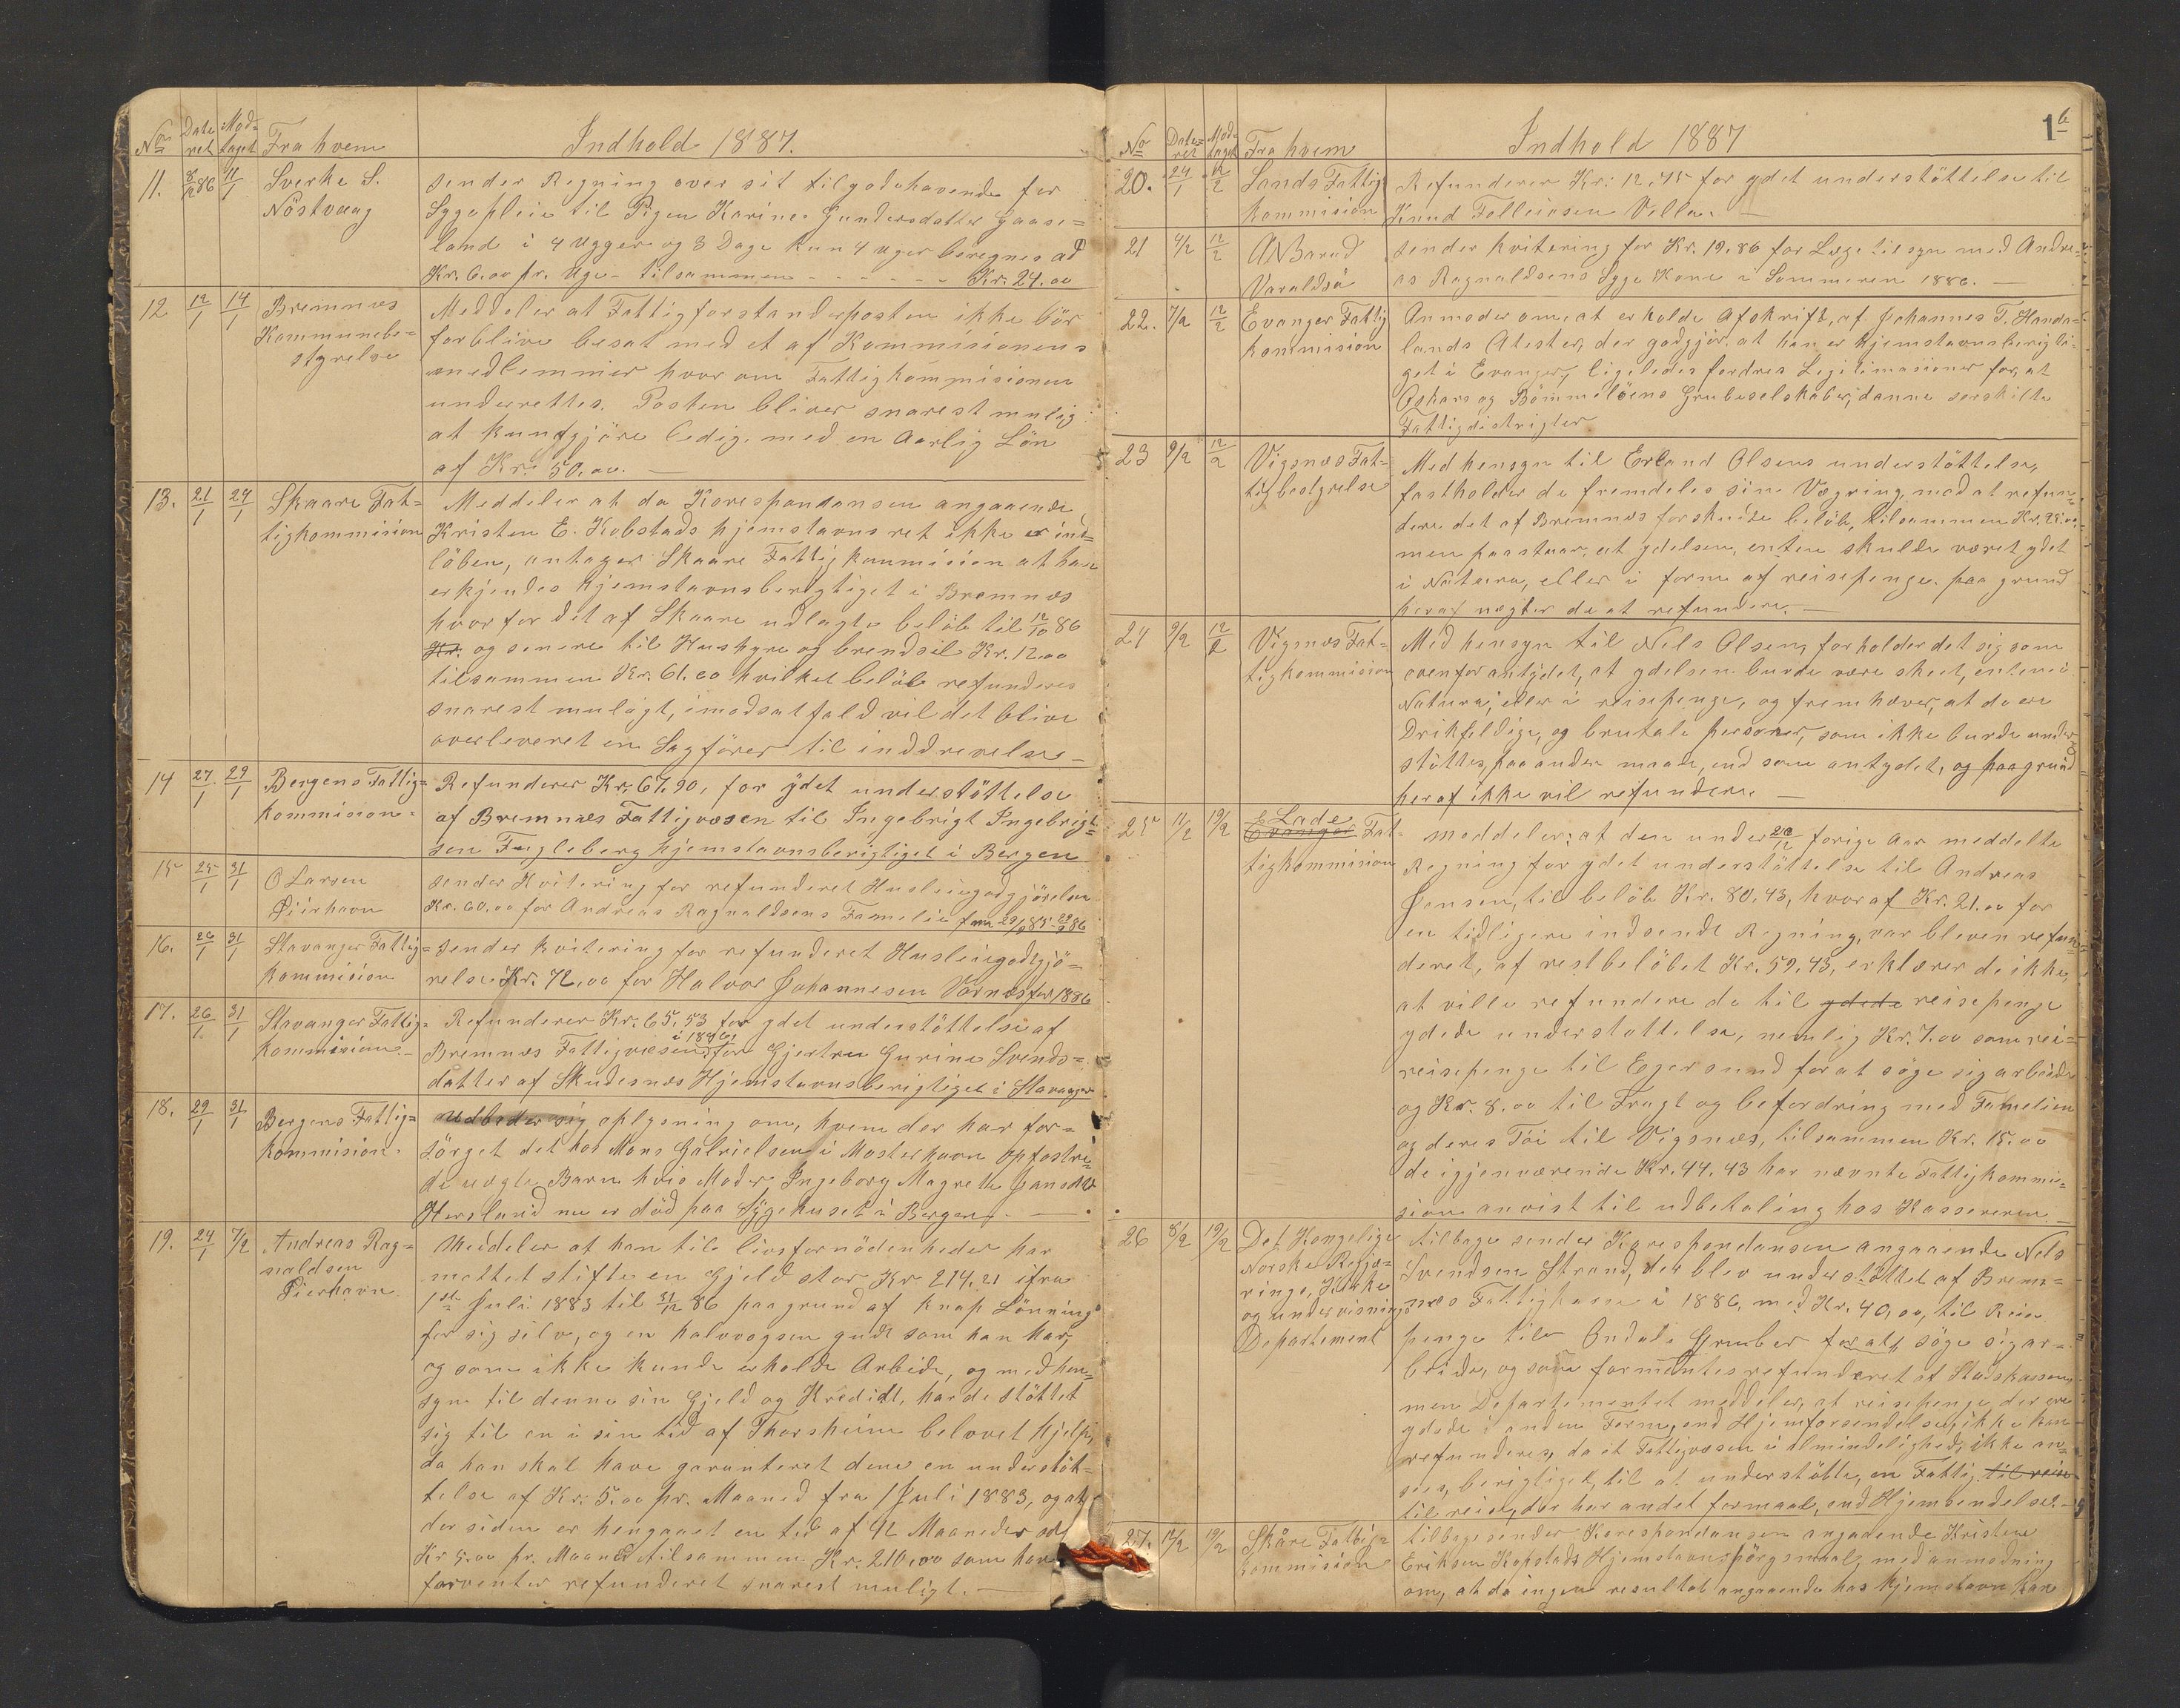 No Dateret Modtaget Fra hvem Indhold 1887.
11. 8/12 86 11/1 Sverke S. Nöstvaag
sender Regning over sit tilgodehavende for
Sygepleie til Pigen Karine Gundersdatter Gaase=
land i 4 Ugger og 3 Dage kun 4 uger beregnes ad
Kr. 6.00 pr. Uge - tilsammen - - - - - - Kr. 24.00
12 12/1 14/1 Bremnæs Kommunebe=styrelse
Meddeler at Fattigforstanderposten ikke bör
forblive besat med et af Kommisionens
medlemmer hvor om Fattigkommisionen
underrettes. Posten bliver snarest mulig
at kundgjöre ledig, med en Aarlig Lön
af Kr. 50.00. —
13. 21/1 24/1 Skaare Fat=tigkommision
Meddeler at da Korespondansen angaaende
Kristen E. Kobstads hjemstavnsret ikke er ind=
löben, antager Skaare Fattigkommision at han
erkjendes hjemstavnsberigtiget i Bremnæs
hvorfor det af Skaare udlagte belöb til 12/10 86
Kr. og senere til Hushyre og brendsil Kr. 12.00
tilsammen Kr. 61.00 hvilket belöb refunderes
snarest muligt, i modsat fald vil det blive
overleveret en Sagförer til inddrevelse —
14 27/1 29/1 Bergens Fattig=kommision
Refunderer Kr. 67.90, for ydet understöttelse
af Bremnæs Fattigvæsen til Ingebrigt Ingebrigt=
sen Fugleberg hjemstavnsberigtiget i Bergen
15 25/1 31/1 O Larsen Pierhavn
sender Kvitering for refunderet Husleiegodtgjörelse
Kr. 60.00 for Andreas Ragnaldsens Familie fra 29/9 85 - 29/9 86
16. 26/1 31/1 Stavanger Fattig=kommision
sender kvitering for refunderet Husleiegodtgjö=
relse Kr. 72.00 for Halvor Johannesen Vornæs for 1886
17. 26/1 31/1 Stavanger Fattig=kommision
Refunderer Kr. 65.53 for ydet understöttelse af
Bremnæs Fattigvæsen i 1886, for Gjertru Gurine Svends=
datter af Skudesnæs Hjemstavnsberigtiget i Stavanger
18. 29/1 31/1 Bergens Fattig=kommision
Udbeder sig oplysning om, hvem der har for=
sörget det hos Mons Gabrielsen i Mosterhavn opfostre=
de uægte Barn hvis Moder Ingeborg Magrethe Jansdtr
Horsland nu er död paa Sygehuset i Bergen. —
19. 24/1 7/2 Andreas Rag=naldsen Pierhavn
Meddeler at han til livsfornödenheder har
mattet stifte en Gjeld stor Kr 214.21 ifra
1ste Juli 1883 til 31/12 86 paa grund af knap Lönning
for sig selv, og en halvvogsen gudt som han har,
og som ikke kunde erholde Arbeide, og med hen=
syn til denne sin Gjeld og Kredidt, havde stöttet
sig til en i sin tid af Thorsheim belovet hjelp,
da han skal have garanteret dem en understöt=
telse af Kr. 5.00 pr. Maaned fra 1 Juli 1883, og at
der siden er hengaaet en tid af 42 Maaneder
Kr 5.00 pr. Maaned tilsammen Kr. 210.00 som han
forventer refunderet snarest muligt. —
No Dateret Modtaget Fra hvem Indhold 1887 1b
20. 24/1 12/2 Lands Fattigkommision
Refunderer Kr: 12.45 for ydet understöttelse til
Knud Tolleivsen Vella. —
21 4/2 12/2 A Barud Varaldsö
sender kvitering for Kr. 19.86 for Læge tilsyn med Andre=
as Ragnaldsens Syge Kone i Sommeren 1886. —
22. 7/2 12/2 Evanger Fattigkommision
Anmoder om, at erholde Afskrift, af Johannes T. Handa=
lands Atester, der godgjör, at han er hjemstavnsberigti=
get i Evanger, ligeledes fordres Legitimasioner for, at
Oskars og Bömmelöens Grubeselskaber, danne serskilte
Fattigdistrigter
23 9/2 12/2 Vigsnæs Fat=tigbestyrelse
Med hensyn til Erland Olsens understöttelse,
fastholder de fremdeles sin Vægring, mod at refun=
dere det af Bremnæs forskudte belöb, tilsammen Kr.
men paastaar, at ydelsen, enten skulde været ydet
i Natura, eller i form af reisepenge. paa grund
heraf nægter de at refundere. —
24 9/2 12/2 Vigsnæs Fat=tigkommision
Med hensyn til Nels Olsen, forholder det sig som
ovenfor antydet, at ydelsen burde være skeet, enten i
Natura, eller i reisepenge, og fremhæver, at de ere
Drikfeldige, og brutale personer, som ikke burde under
stöttes, paa anden maade, end som antydet, og paa grund
heraf ikke vil refundere —
25 11/2 19/2 E Lade Evanger Fat=tigkommision
meddeler: at den under 28/12 forige Aar meddelte
Regning for ydet understöttelse til Andreas
Jensen, til belöb Kr. 80.43, hvoraf Kr. 21.00 for
en tidligere indsendt Regning, var bleven refun=
deret, af restbelöbet Kr. 59.43, erklærer de ikke,
at ville refundere de til ydede reisepenge
ydede understottelse, nemlig Kr. 7.00 som rei=
reisepenge til Egersund for at söge sig arbeide
og Kr. 8.00 til Fragt og befordring med Familien
og deres Töi til Vigsnæs, tilsammen Kr. 15.00
de igjenværende Kr. 44.43 har nævnte Fattigkommi=
sion anvist til udbetaling hos Kassereren —
26 8/2 19/2 Det Kongelige Norske Regje=rings, Kirke og undervisnings Departement
tilbage sender Korespondansen angaaende Nels
Svendsen Strand, der blev understöttet af Brem=
næs Fattigkasse i 1886, med Kr. 40.00, til Reise
penge til Ondals Gruber for at, söge sig ar=
beide, og som formentes refunderet af Statskassen,
men Departementet meddeler, at reisepenge der ere
ydede i anden Form, end Hjemforsendelse, ikke kan
refunderes, da et Fattigvæsen i almindelighed, ikke an=
sees, berigtiget, til at understötte, en Fattig til reise
til reise, der har andet formaal, end Hjemsendelse. —
27. 17/2 19/2 Skåre Fattig=kommision
tilbagesender Korespondansen angaaende Kristen
Eriksen Kopstads Hjemstavnspörgsmaal, med anmodning
om, at da ingen resultat angaaende hos hjemstavn kan